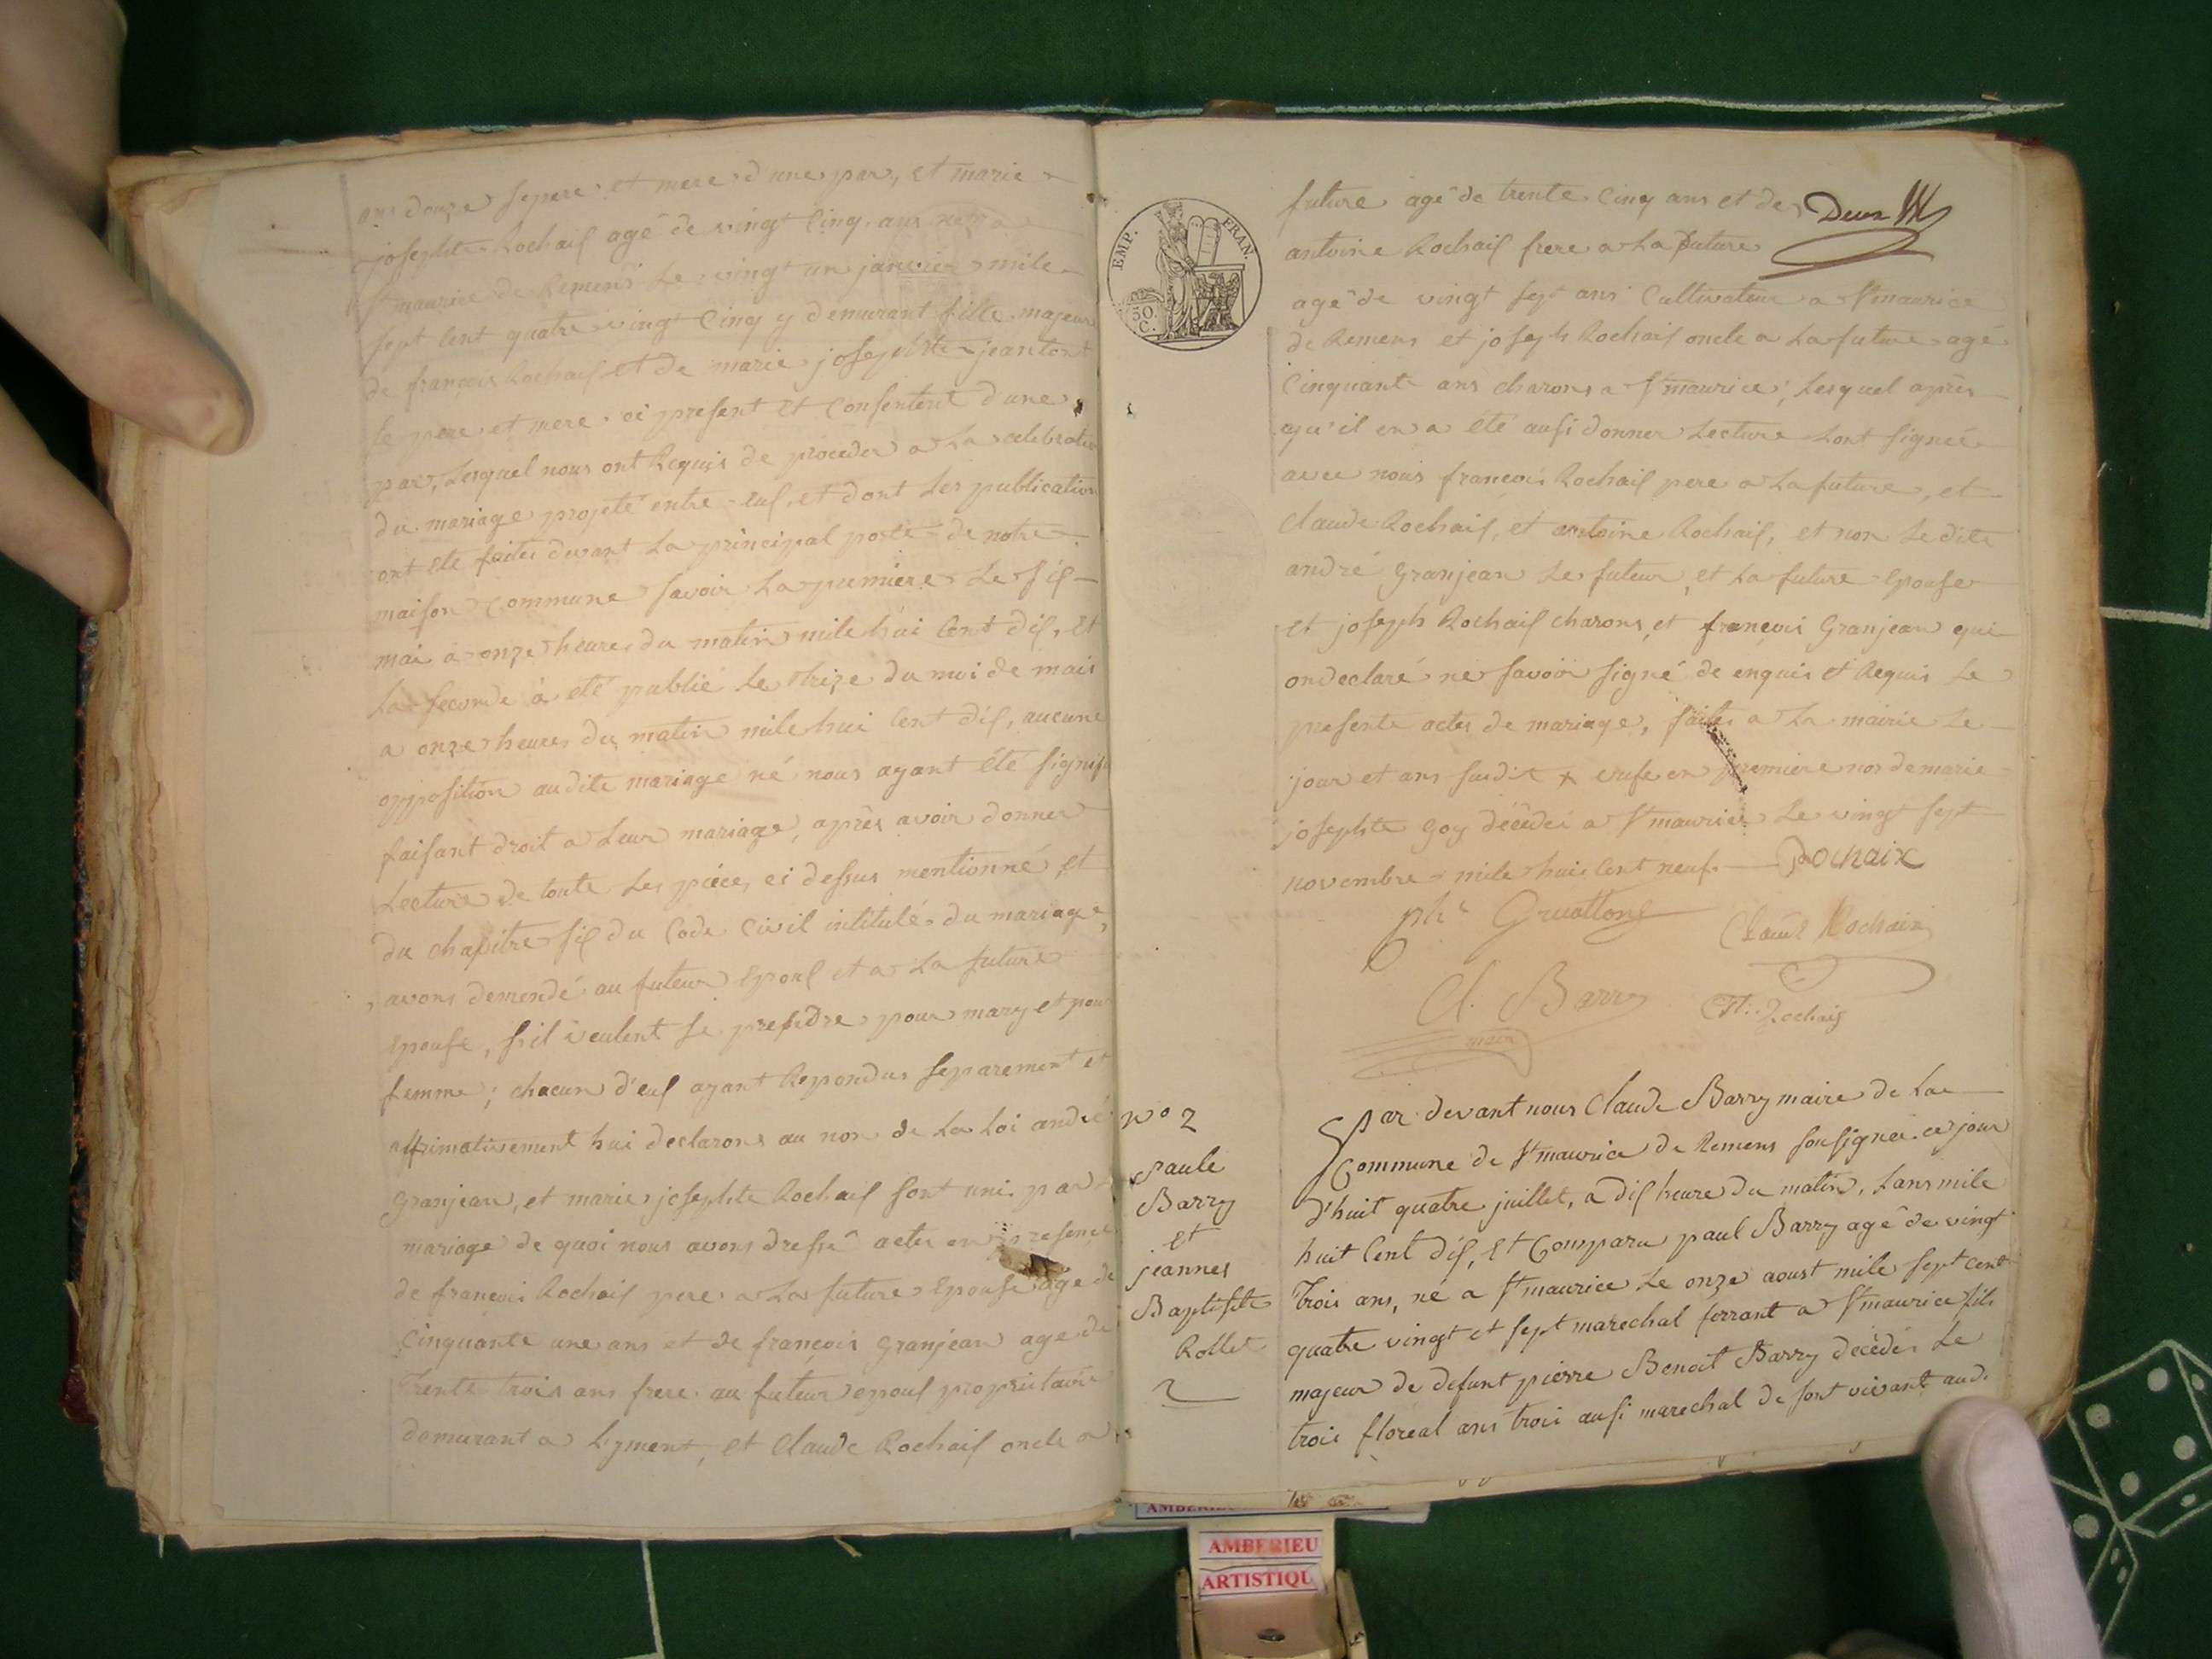 ans douze se pere et mere d'une par, et marie
josephte Rochaix agé de vingt Cinq ans née a
St maurice de Remens Le vingt un janvier mile
sept Cent quatre vingt Cinq y demurant fille majeure
de françois Rochaix et de marie josephte jeantont
se pere et mere ci present et Consentent d'une
par, Lesquel nous ont Requis de proceder a La celebration
du mariage projeté entre eux, et dont Les publication
ont été faites devant La principal porte de notre
maison Commune savoir La premiere Le six
mai a onze heure du matin mile hui Cent dix, et
La seconde a eté publié Le Treize du moi de mais
a onze heures du matin mile hui Cent dix, aucune
opposition audite mariage né nous ayant été signifi
faisant droit a Leur mariage, après avoir donner
Lecture de toute Les pièces ci dessus mentionné et
du chapitre six du Code Civil intitulé du mariage,
avons demendé au futeur Epoux et a La future
Epouse, s'il veulent se prendre pour mary et pour
femme; chacun d'eux ayant Repondus separement et
affrimativement hui declarons au non de La Loi andré
Granjean, et marie josephte Rochaix sont uni par
mariage de quoi nous avons dressé actes en presence
de françois Rochaix pere a La future Epouse age de
Cinquante une ans et de françois Granjean age de
Trente trois ans frere au futeur epoux proprietaire
demurant a Lyment, et Claude Rochaix oncle a
EMP. FRAN.
50. C.
future agé de trente Cinq ans et de Deux
antoine Rochaix frere a La future
agé de vingt sept ans Cultivateur a St maurice
de Remens et joseph Rochaix oncle a La future agé
Cinquante ans charons a St maurice; Lesquel après
qu'il en a été ausi donner Lecture Lont signée
avec nous françois Rochaix pere a La future, et
Claude Rochaix, et antoine Rochaix, et non Le dite
andré Granjean Le futeur, et La future Epouse
et joseph Rochaix charons, et françois Granjean qui
ondeclaré ne savoir signé de enquis et Requis Le
presente actes de mariage, faites a La mairie Le
jour et ans susdit x veufe en premiere nos de marie
josephte Goy décédéi a St maurice Le vingt sept
novembre mile hui Cent neuf. Rochaix
phe Gruatton
Claude Rochaix
Cl. Barry
maire
At. Rochaix
n° 2
Paule
Barry
et
jeannes
Baptiste
Rollet
Par devant nous Claude Barry maire de La
Commune de St maurice de Remens sousignéé ce jour
d'huit quatre juillet, a dix heure du matin, Lans mile
huit Cent dix, et Comparu paul Barry agé de vingt
Trois ans, né a St maurice Le onze aoust mile sept cent
quatre vingt et sept marechal ferrant a St maurice fils
majeur de defunt pierre Benoit Barry décédéi Le
trois floréal ans trois ausi marechal de sont vivant aud.
AMBERIEU
AMBERIEU
ARTISTIQU